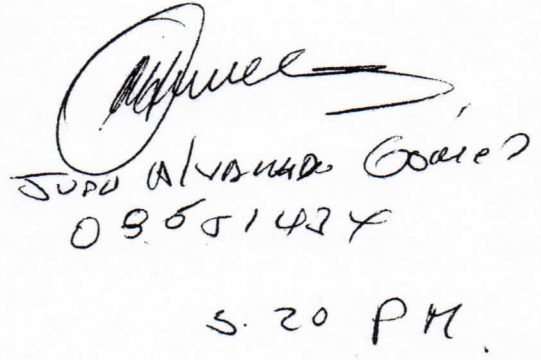 Juan Alvarado Gomez
09551434
5.20 PM.